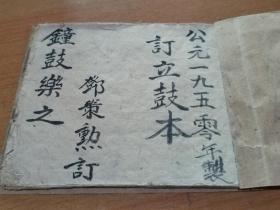 公元一九五零年製
訂立鼓本
鄧榘勲訂
鐘鼓樂之